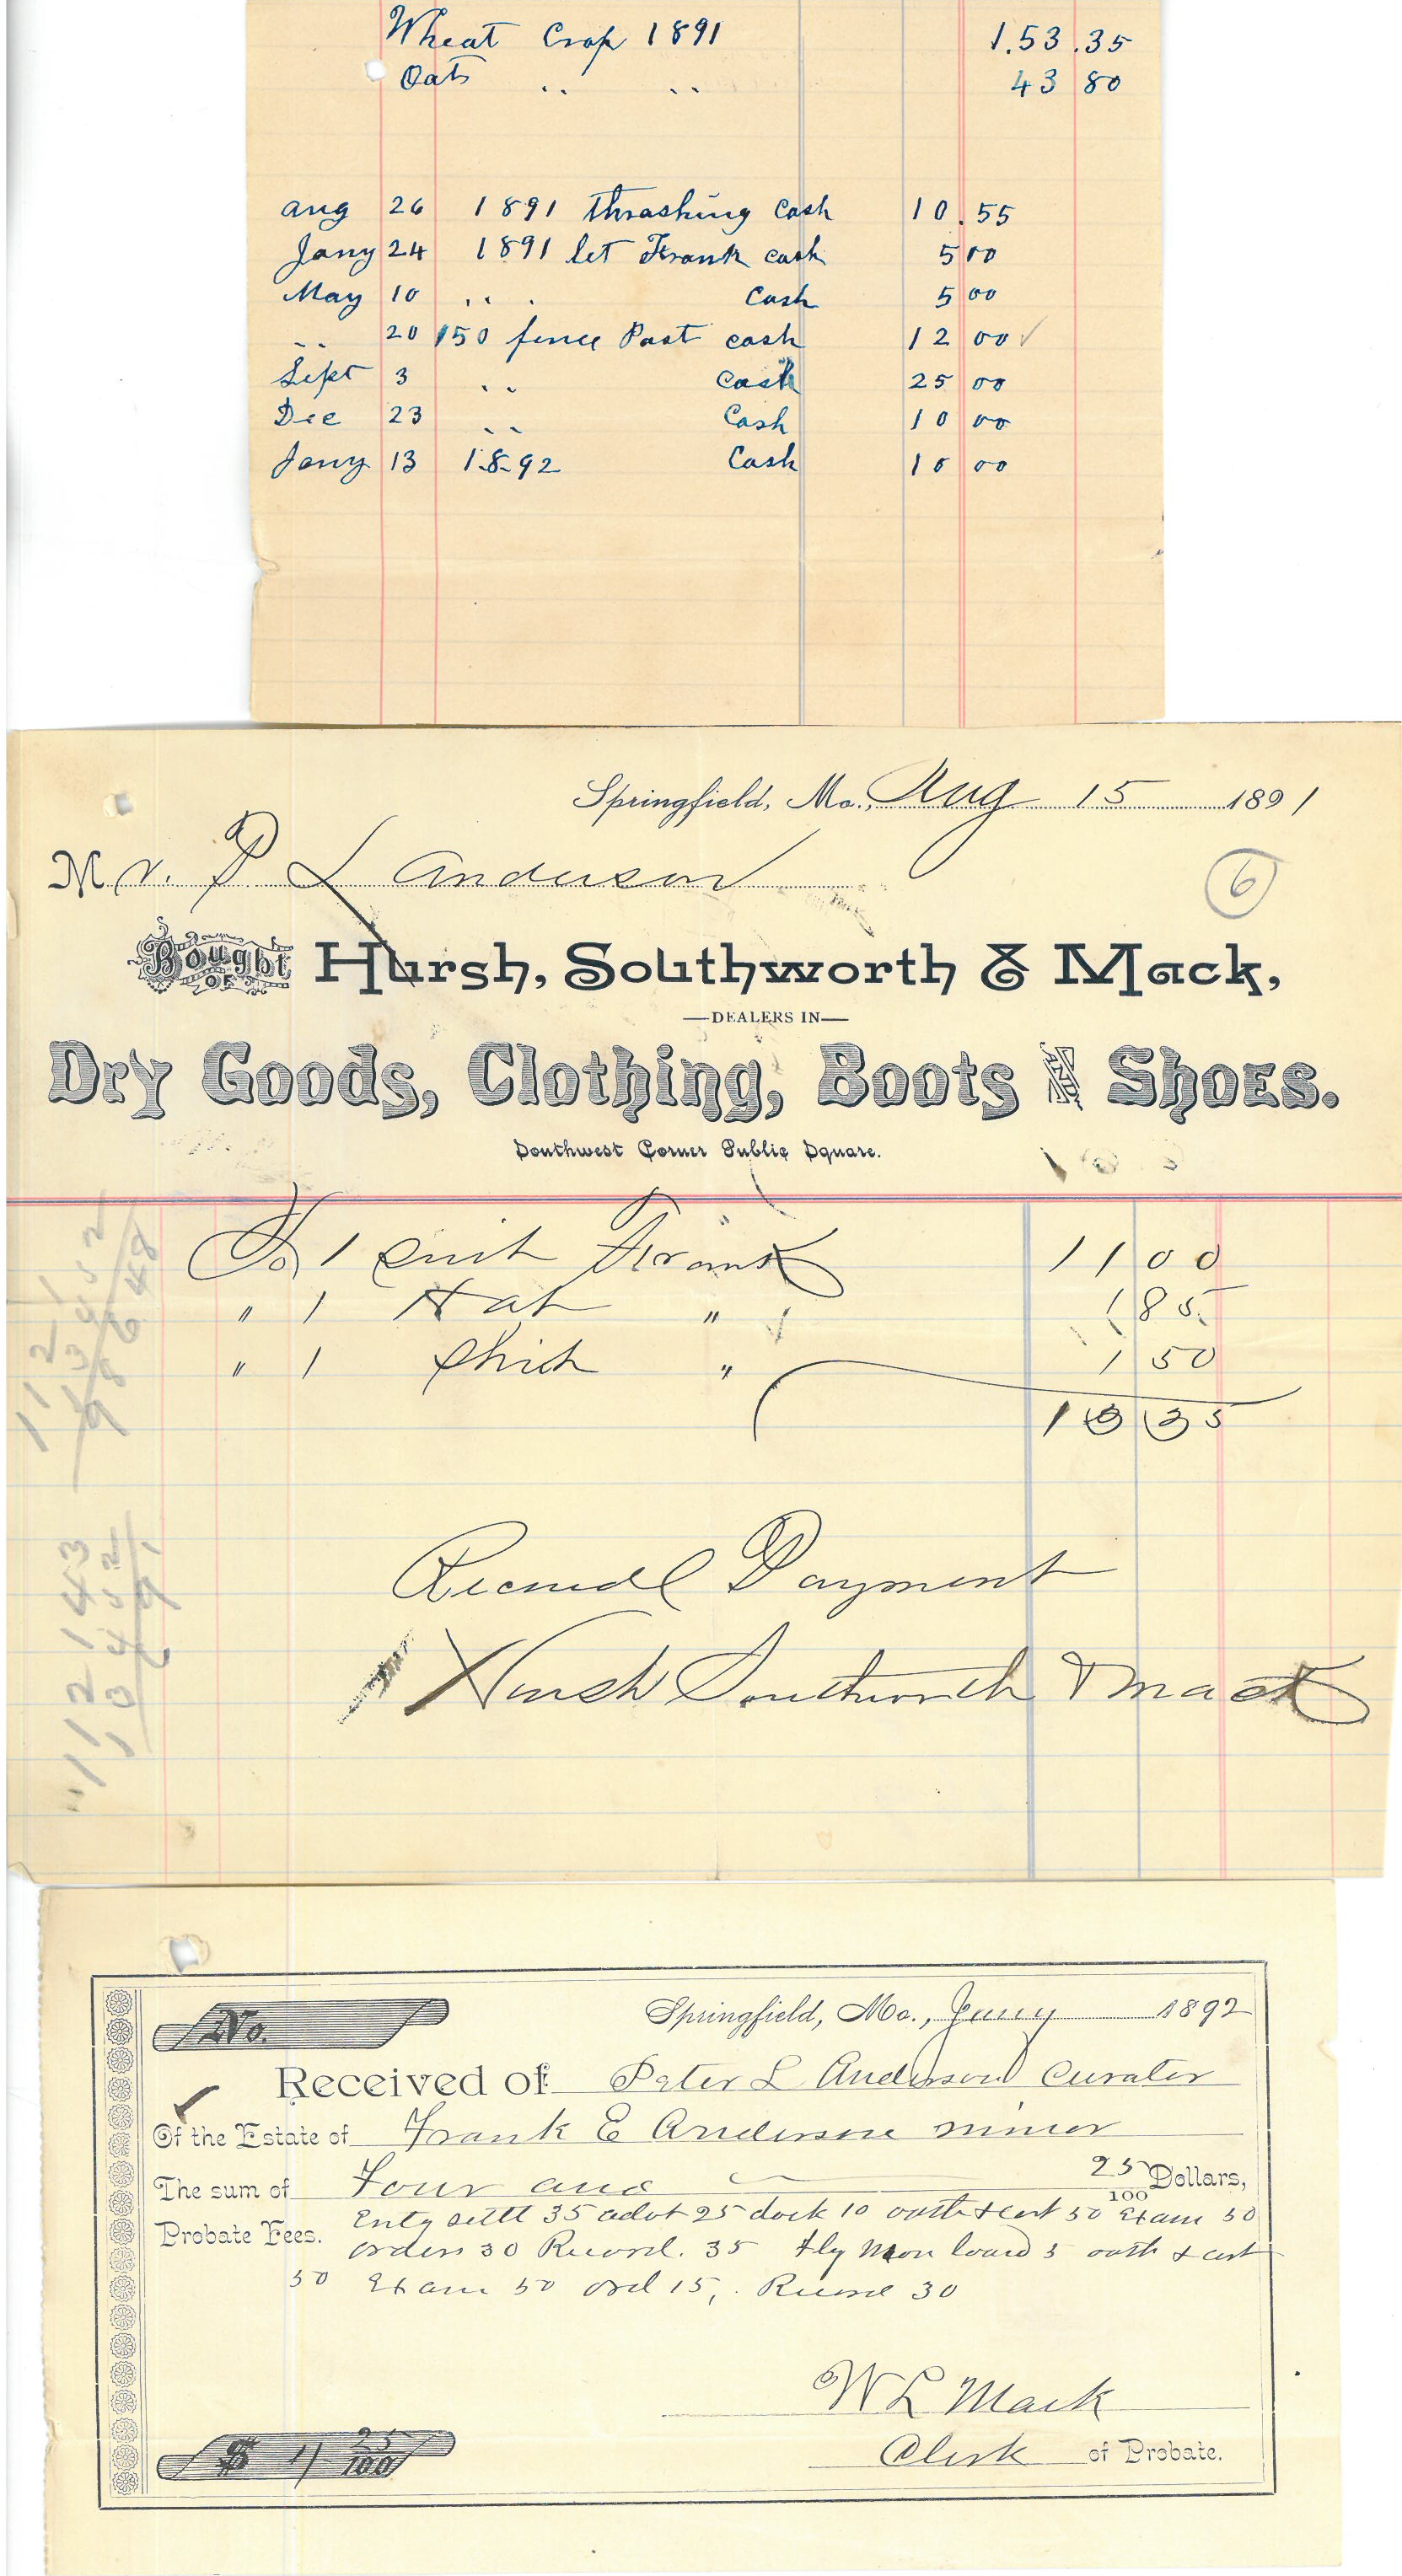 Wheat Crop 1891 1.53.35
Oats .. .. 43 80
Aug 26 1891 Thrashing Cash 10.55
Jany 24 1891 let Frank cash 5 00
May 10 .. . Cash 5 00
.. 20 150 fence Post cash 12 00 ✓
Sept 3 .. Cash 25 00
Dec 23 .. Cash 10 00
Jany 13 1892 Cash 10 00
Springfield, Mo., Aug 15 1891
Mr. P L Anderson
6
Bought OF Hursh, Southworth & Mack,
—DEALERS IN—
Dry Goods, Clothing, Boots AND Shoes.
Southwest Corner Public Square.
To 1 Suit Frank 11 00
" 1 Hat " 1 85
" 1 Shirt " 1 50
Received Payment
Hursh Southworth & Mack
No.
Springfield, Mo., Jany 1892
Received of Peter L Anderson Curator
Of the Estate of Frank E Anderson minor
The sum of Four and 25/100 Dollars,
Probate Fees. Entg settl 35 adot 25 dock 10 oath & cert 50 Exam 50
orders 30 Record. 35 oath & cert
50 Exam 50 ord 15, Record 30
W L Mack
Clerk of Probate.
$ 4 25/100